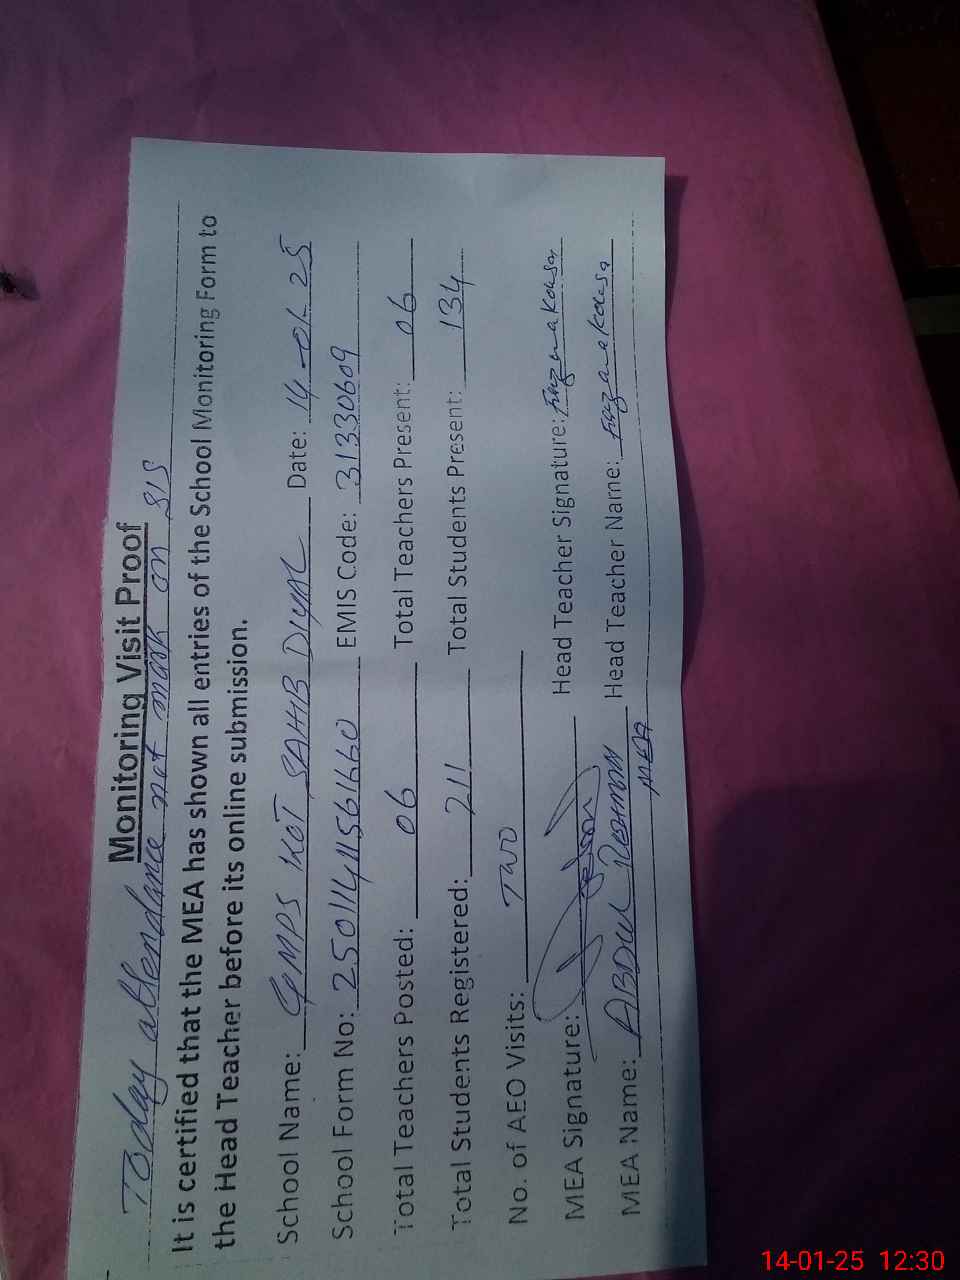 Monitoring Visit Proof
Today attendance not mark on SIS
It is certified that the MEA has shown all entries of the School Monitoring Form to
the Head Teacher before its online submission.
School Name: GMPS KOT SAHIB DIYAL Date: 14-01-25
School Form No: EMIS Code: 31330609
Total Teachers Posted: 06 Total Teachers Present: 06
Total Students Registered: 211 Total Students Present: 134
No. of AEO Visits: TWO
MEA Signature: Head Teacher Signature: Farzana Kousar
MEA Name: ABDUL REHMAN Head Teacher Name: Farzana Kousar
MEA
14-01-25 12:30